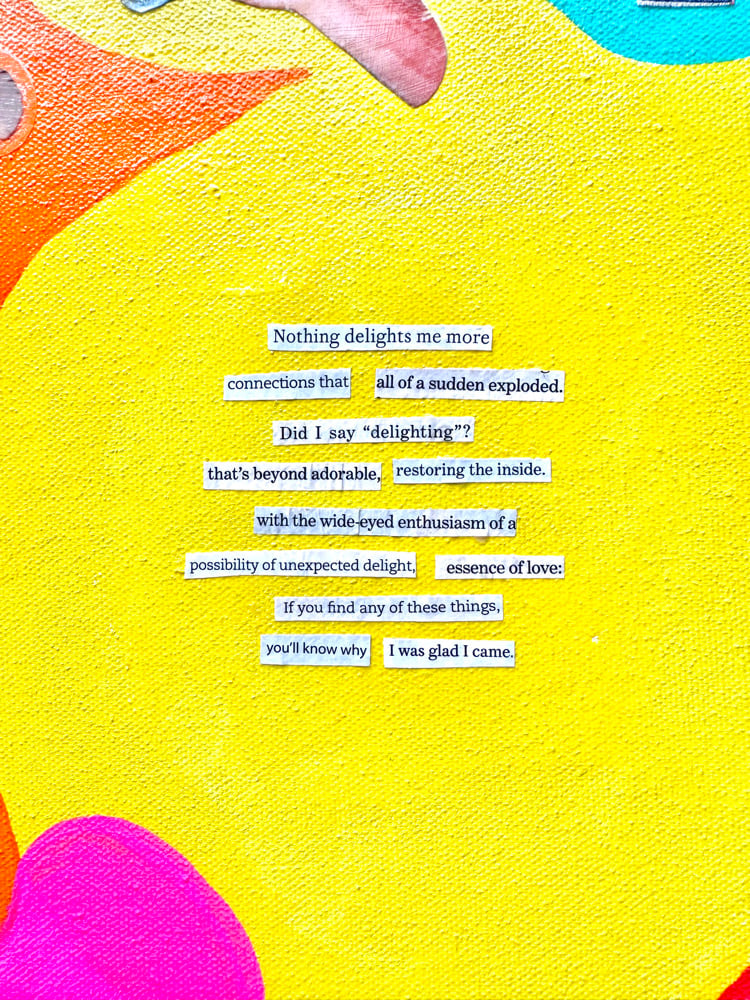 Nothing delights me more
connections that all of a sudden exploded.
Did I say “delighting”?
that’s beyond adorable, restoring the inside.
with the wide-eyed enthusiasm of a
possibility of unexpected delight, essence of love:
If you find any of these things,
you’ll know why I was glad I came.